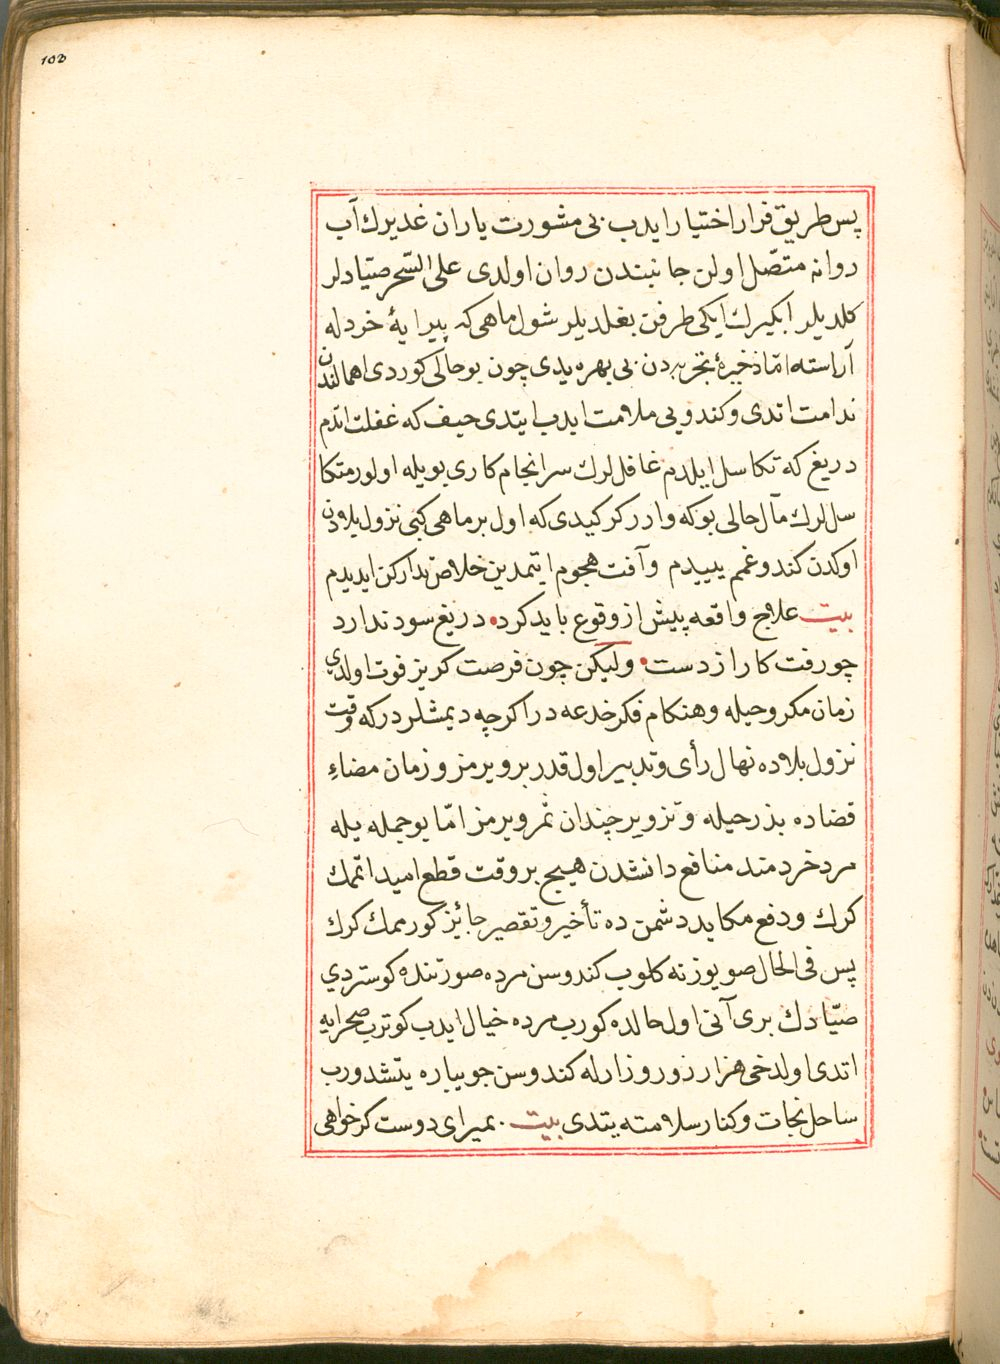 103
پس طریق فرار اختیار ایدب بی مشورت یاران غدیرك آب
روانه متّصل اولن جانبندن روان اولدی علی السّحر صیّادلر
کلدیلر ابکیرك ایکی طرفن بغلدیلر شول ماهی که پیرایهٔ خردله
آراسته امّا ذخیرهٔ تجربه دن بی بهره یدی چون بو حالی کوردی اهمالندن
ندامت اتدی و کندویی ملامت ایدب ایتدی حیف که غفلت اتدم
دریغ که تکاسل ایلدم غافللرك سرانجام کاری بویله اولور متکا
سللرك مآل حالی بو که وادر کرکیدی که اول بر ماهی کبی نزول بلادن
اوکدن کندو غمم ییدم و آفت هجوم ایتمدین خلاص تدارکن ایدیدم
بیت علاج واقعه پیش از وقوع باید کرد دریغ سود ندارد
چو رفت کار از دست ولیکن چون فرصت کریز فوت اولدی
زمان مکر و حیله و هنکام فکر خدعه در اکرچه دیمشلردر که وقت
نزول بلاده نهال رأی و تدبیر اول قدر بر ویرمز و زمان مضاء
قضاده بذر حیله و تزویر چندان ثمر ویرمز امّا بو جمله یله
مرد خردمند منافع دانشدن هیچ بر وقت قطع امید اتمك
کرك و دفع مکاید دشمن ده تأخیر و تقصیر جائیز کورممك کرك
پس فی الحال صو یوزنه کلوب کندوسن مرده صورتنده کوستردی
صیّادك بری آنی اول حالده کورب مرده خیال ایدب کوترب صحرایه
اتدی اولدخی هزار زور و زارله کندوسن جویباره یتشدورب
ساحل نجات و کنار سلامته یتدی بیت بمیر ای دوست کر خواهی